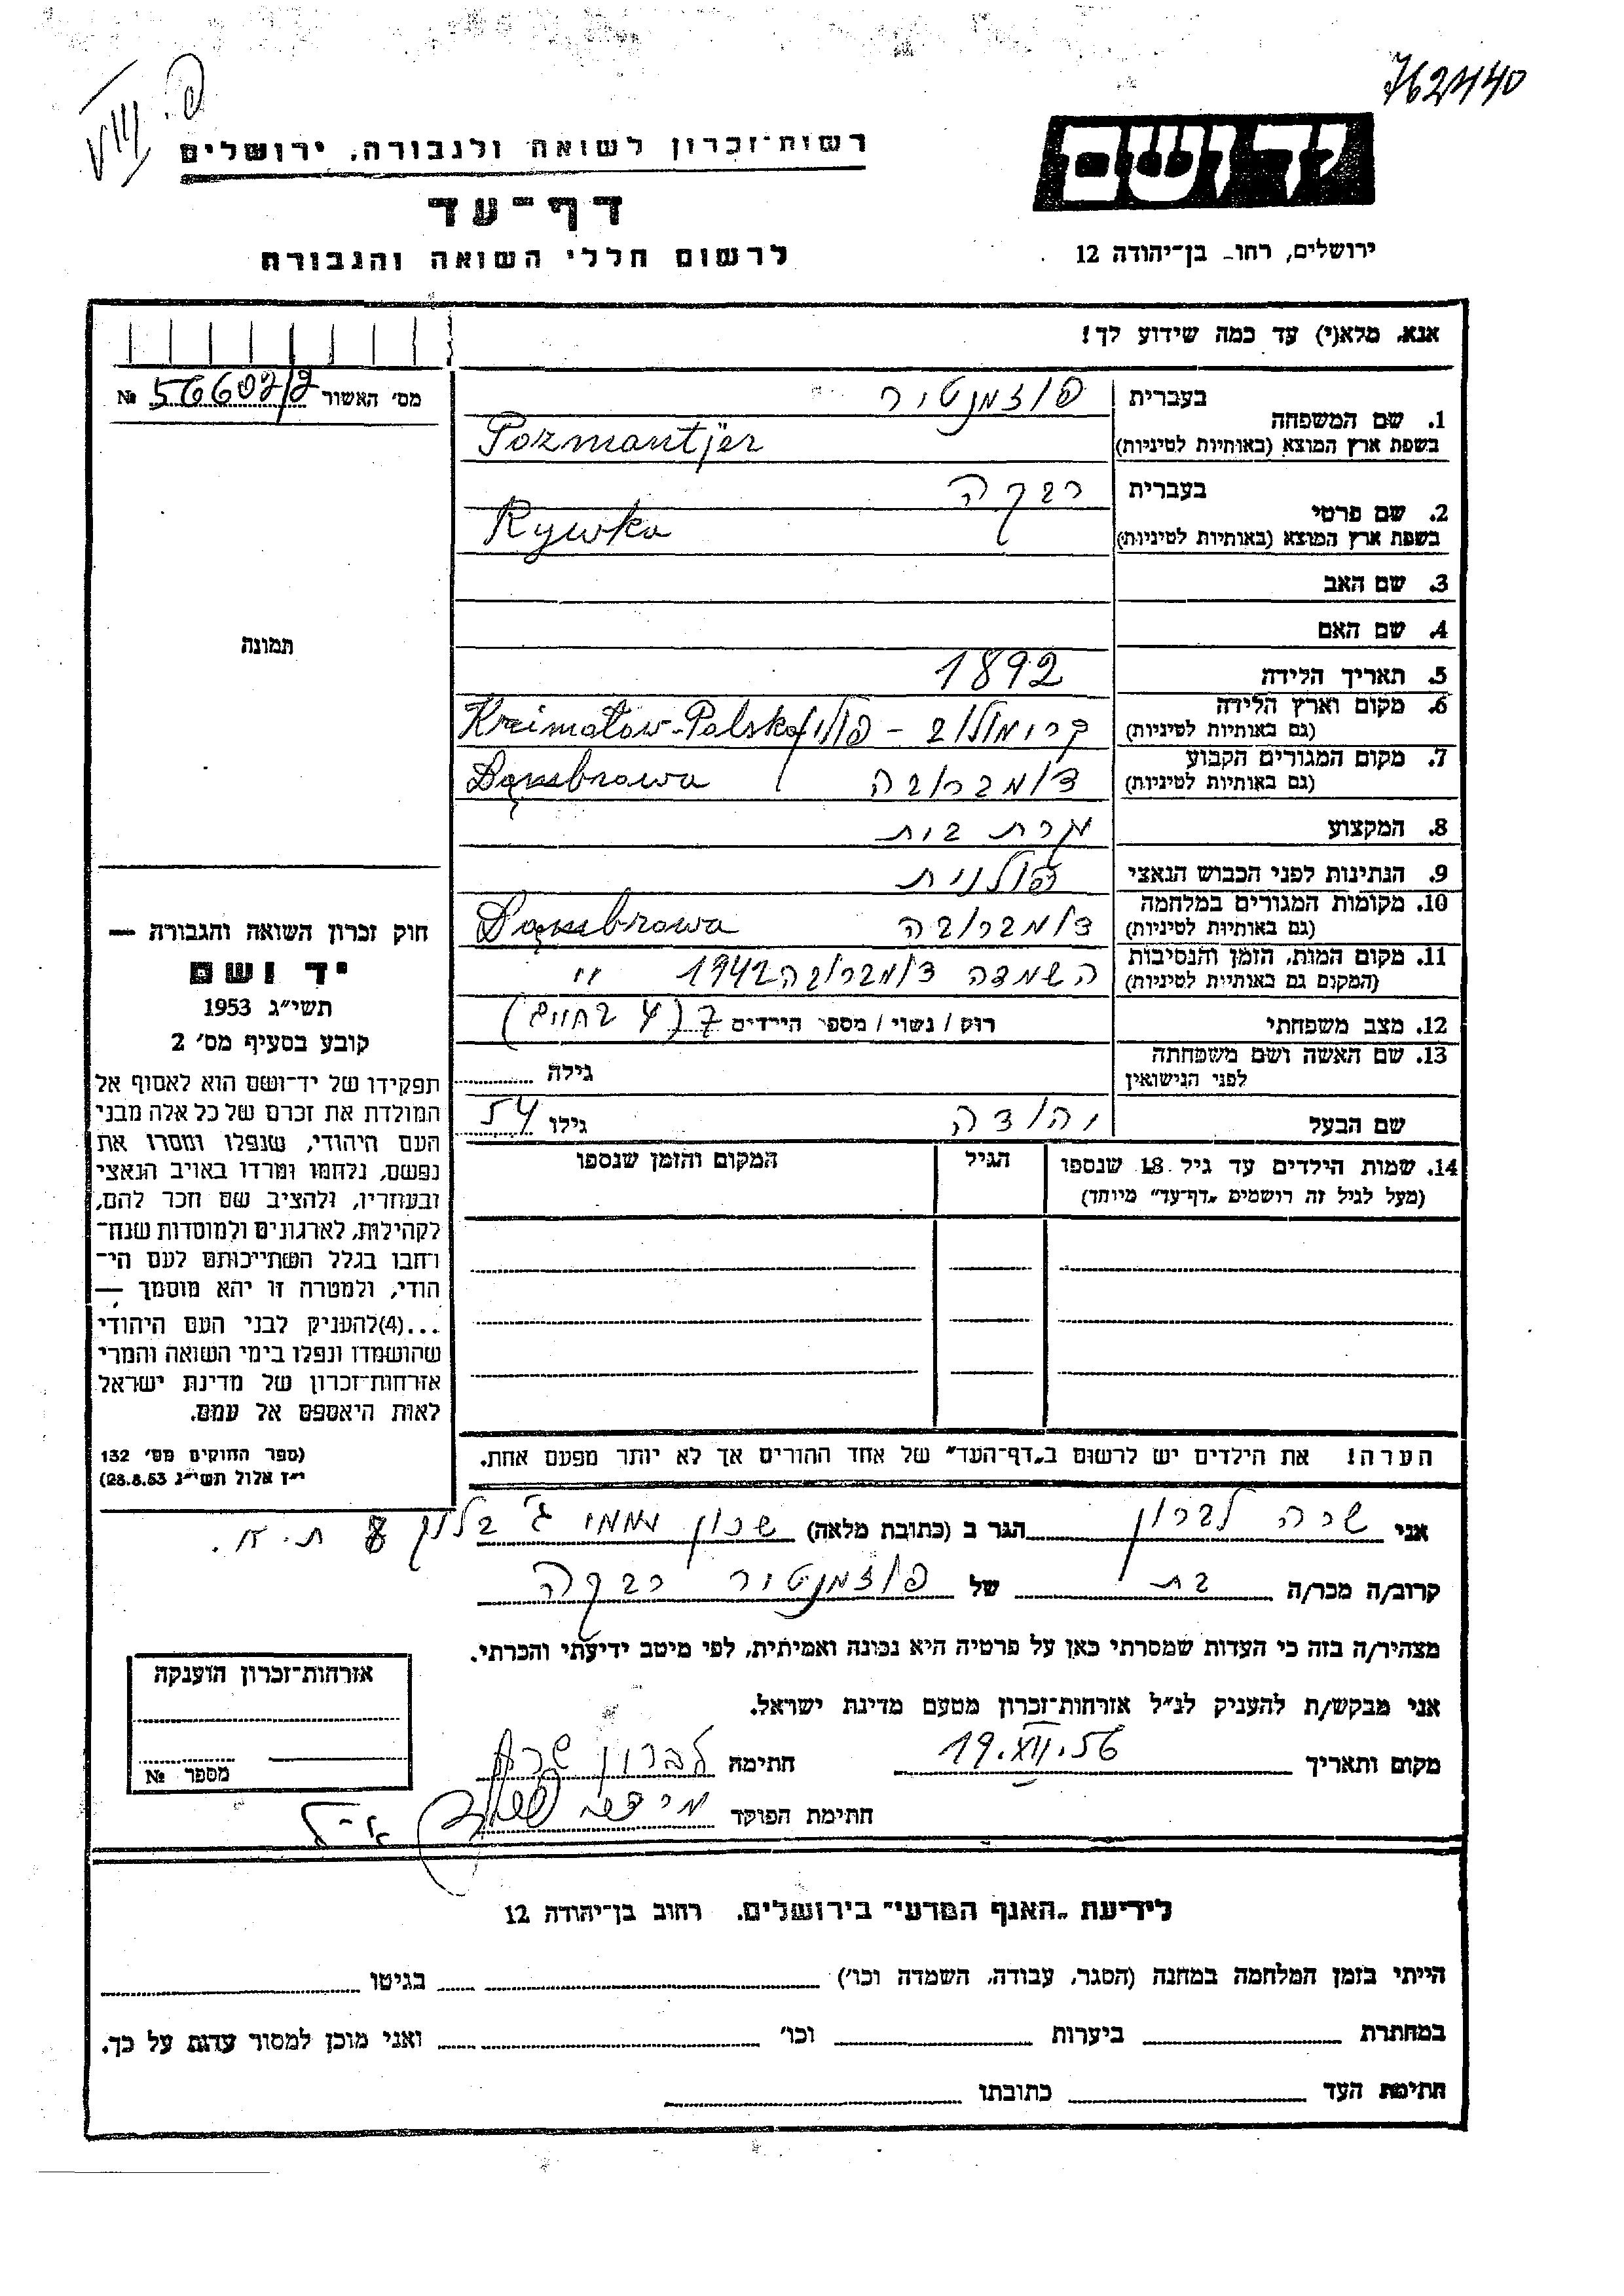 762440
פ. VII
יד ושם
רשות־זכרון לשואה ולגבורה, ירושלים
דף־עד
לרשום חללי השואה והגבורה
ירושלים, רחו- בן־יהודה 12
אנא, מלא(י) עד כמה שידוע לך!
מס׳ האשור 56607/2 №
תמונה
1. שם המשפחה בעברית פוזמנטיר
בשפת ארץ המוצא (באותיות לטיניות) Pozmantjer
2. שם פרטי בעברית רבקה
בשפת ארץ המוצא (באותיות לטיניות) Rywka
3. שם האב
4. שם האם
5. תאריך הלידה 1892
6. מקום וארץ הלידה (גם באותיות לטיניות) קרימולוב - פולין Kreimolow-Polska
7. מקום המגורים הקבוע (גם באותיות לטיניות) דומברובה Dąmbrowa
8. המקצוע עקרת בית
9. הנתינות לפני הכבוש הנאצי פולנית
10. מקומות המגורים במלחמה (גם באותיות לטיניות) דומברובה Dąmbrowa
11. מקום המות, הזמן והנסיבות (המקום גם באותיות לטיניות) השמדה דומברובה 1942 "
12. מצב משפחתי רוק / נשוי / מספר הילדים 7 (4 בחיים)
13. שם האשה ושם משפחתה לפני הנישואין גילה
שם הבעל יהודה גילו 54
14. שמות הילדים עד גיל 18 שנספו הגיל המקום והזמן שנספו
(מעל לגיל זה רושמים „דף־עד״ מיוחד)
חוק זכרון השואה והגבורה —
יד ושם
תשי״ג 1953
קובע בסעיף מס׳ 2
תפקידו של יד־ושם הוא לאסוף אל
המולדת את זכרם של כל אלה מבני
העם היהודי, שנפלו ומסרו את
נפשם, נלחמו ומרדו באויב הנאצי
ובעוזריו, ולהציב שם וזכר להם,
לקהילות, לארגונים ולמוסדות שנח־
רחבו בגלל השתייכותם לעם הי־
הודי, ולמטרה זו יהא מוסמך —
...(4)להעניק לבני העם היהודי
שהושמדו ונפלו בימי השואה והמרי
אזרחות־זכרון של מדינת ישראל
לאות היאספם אל עמם.
(ספר החוקים מס׳ 132
י״ז אלול תשי״ג 28.8.53)
הערה! את הילדים יש לרשום ב„דף־העד״ של אחד ההורים אך לא יותר מפעם אחת.
אני שרה לברון הגר ב (כתובת מלאה) שכון עממי ג׳ בלוק 8 ת.א.
קרוב/ה מכר/ה בת של פוזמנטיר רבקה
מצהיר/ה בזה כי העדות שמסרתי כאן על פרטיה היא נכונה ואמיתית, לפי מיטב ידיעתי והכרתי.
אני מבקש/ת להעניק לנ״ל אזרחות־זכרון מטעם מדינת ישראל.
מקום ותאריך 19.XII.56 חתימה לברון שרה
חתימת הפוקד
אזרחות־זכרון הוענקה
מספר №
לידיעת „האגף המדעי״ בירושלים, רחוב בן־יהודה 12
הייתי בזמן המלחמה במחנה (הסגר, עבודה, השמדה וכו׳) בגיטו
במחתרת ביערות וכו׳ ואני מוכן למסור עדות על כך.
חתימת העד כתובתו